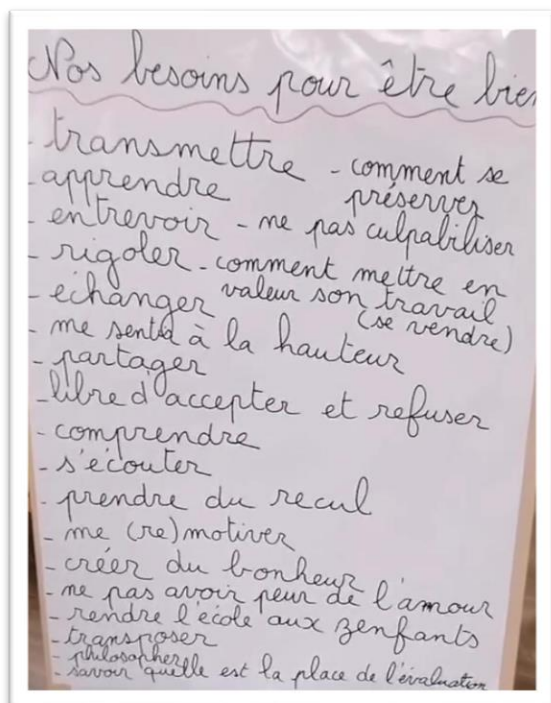 Nos besoins pour être bien
- transmettre - comment se
préserver
- apprendre
- entrevoir - ne pas culpabiliser
- rigoler - comment mettre en
valeur son travail
(se vendre)
- échanger
- me sentir à la hauteur
- partager
- libre d'accepter et refuser
- comprendre
- s'écouter
- prendre du recul
- me (re)motiver
- créer du bonheur
- ne pas avoir peur de l'amour
- rendre l'école aux zenfants
- transposer
- philosopher
- savoir quelle est la place de l'évaluation